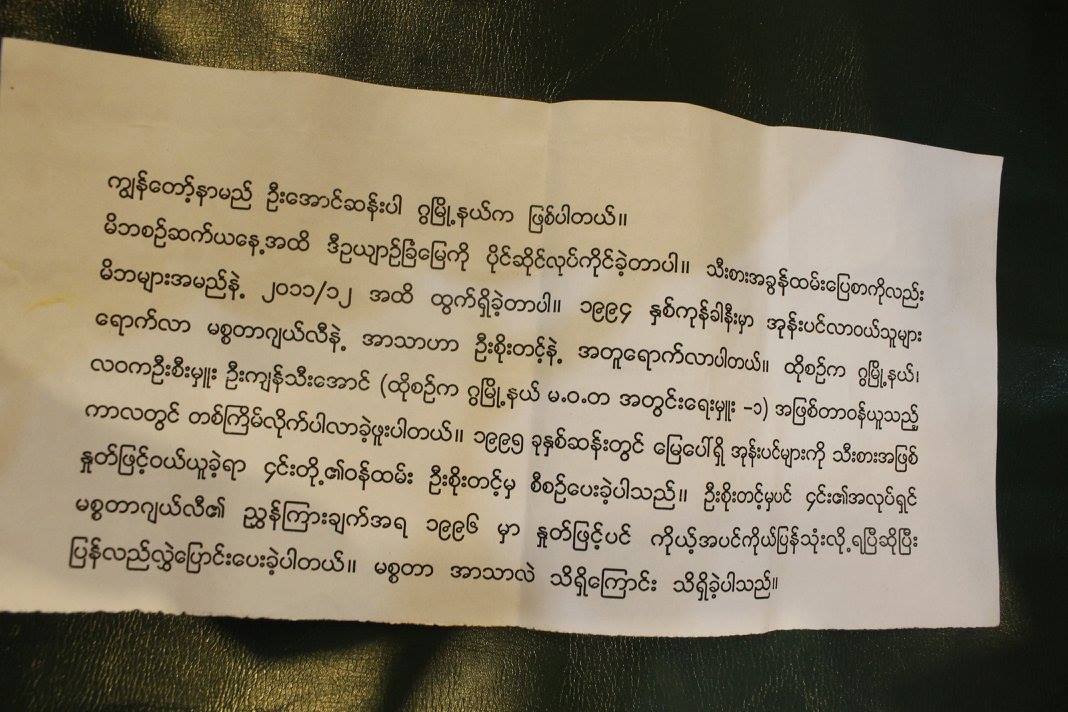 ကျွန်တော့်နာမည် ဦးအောင်ဆန်းပါ ဂွမြို့နယ်က ဖြစ်ပါတယ်။
မိဘစဉ်ဆက်ယနေ့အထိ ဒီဥယျာဉ်ခြံမြေကို ပိုင်ဆိုင်လုပ်ကိုင်ခဲ့တာပါ။ သီးစားအခွန်ထမ်းပြေစာကိုလည်း
မိဘများအမည်နဲ့ ၂၀၁၁/၁၂ အထိ ထွက်ရှိခဲ့တာပါ။ ၁၉၉၄ နှစ်ကုန်ခါနီးမှာ အုန်းပင်လာဝယ်သူများ
ရောက်လာ မစ္စတာဂျယ်လီနဲ့ အာသာဟာ ဦးစိုးတင့်နဲ့ အတူရောက်လာပါတယ်။ ထိုစဉ်က ဂွမြို့နယ်၊
လဝကဦးစီးမှူး ဦးကျန်သီးအောင် (ထိုစဉ်က ဂွမြို့နယ် မ.ဝ.တ အတွင်းရေးမှူး -၁) အဖြစ်တာဝန်ယူသည့်
ကာလတွင် တစ်ကြိမ်လိုက်ပါလာခဲ့ဖူးပါတယ်။ ၁၉၉၅ ခုနှစ်ဆန်းတွင် မြေပေါ်ရှိ အုန်းပင်များကို သီးစားအဖြစ်
နှုတ်ဖြင့်ဝယ်ယူခဲ့ရာ ၄င်းတို့၏ဝန်ထမ်း ဦးစိုးတင့်မှ စီစဉ်ပေးခဲ့ပါသည်။ ဦးစိုးတင့်မှပင် ၄င်း၏အလုပ်ရှင်
မစ္စတာဂျယ်လီ၏ ညွှန်ကြားချက်အရ ၁၉၉၆ မှာ နှုတ်ဖြင့်ပင် ကိုယ့်အပင်ကိုယ်ပြန်သုံးလို့ရပြီဆိုပြီး
ပြန်လည်လွှဲပြောင်းပေးခဲ့ပါတယ်။ မစ္စတာ အာသာလဲ သိရှိကြောင်း သိရှိခဲ့ပါသည်။